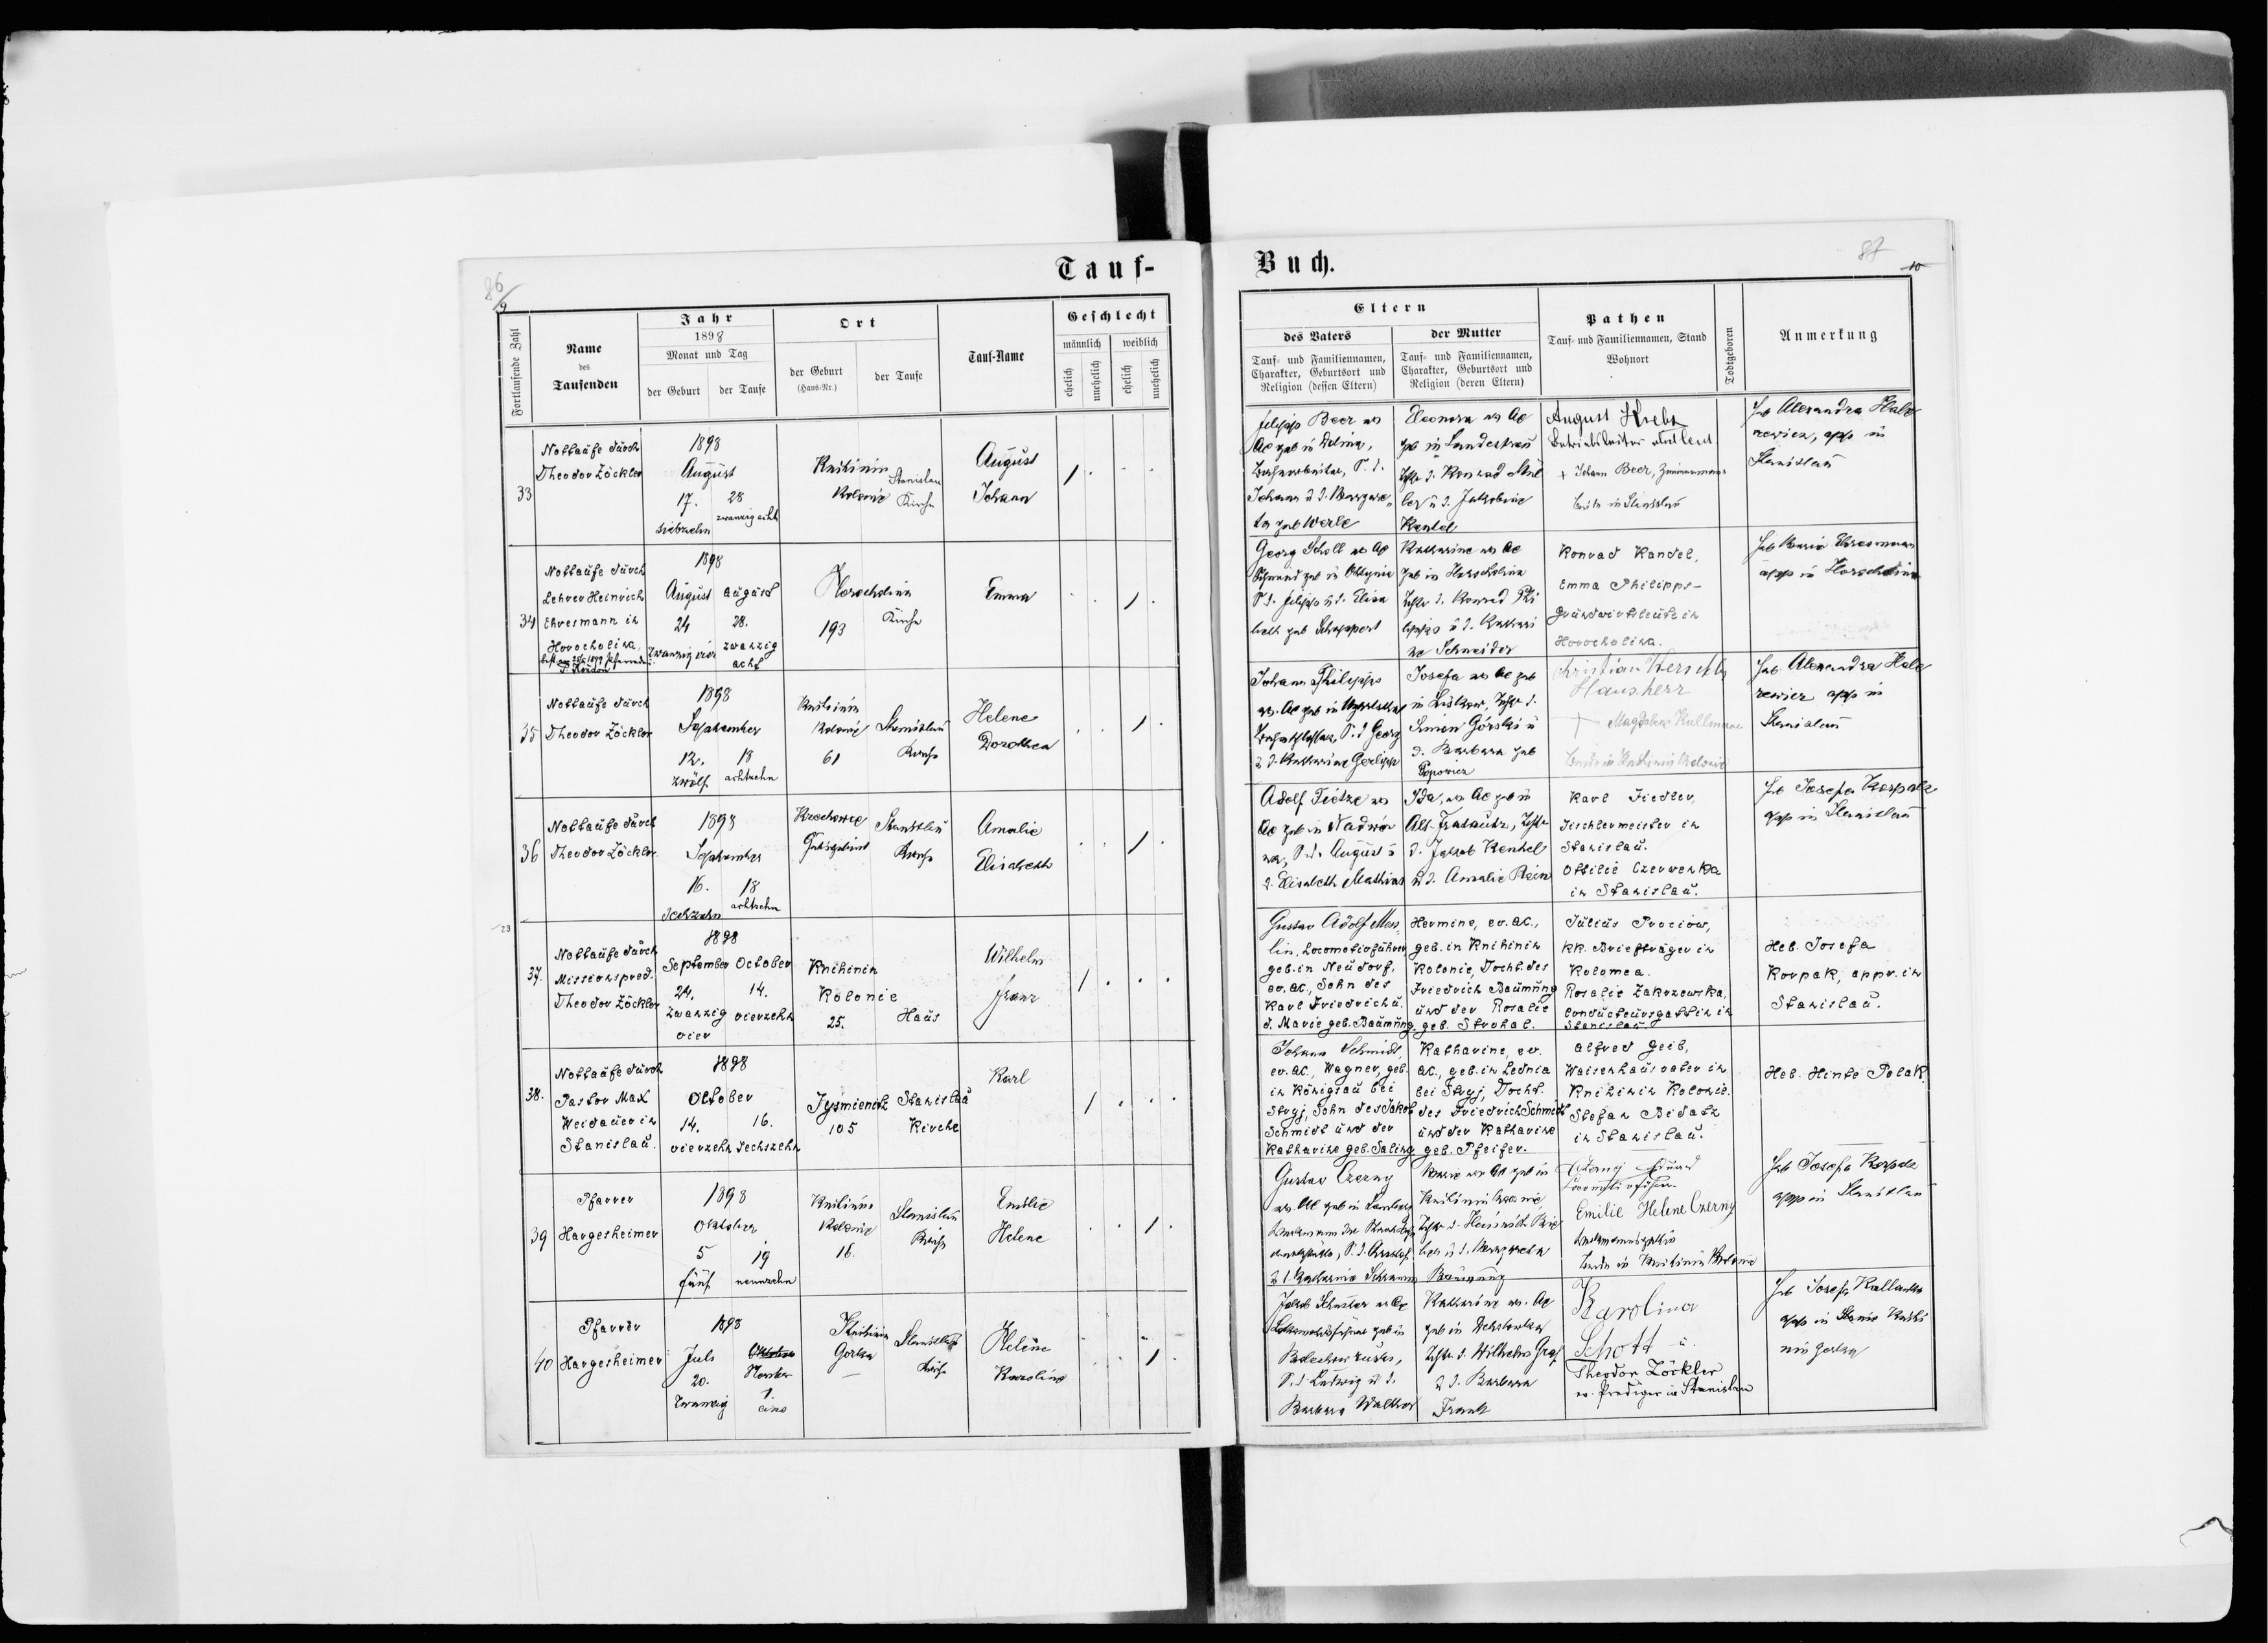 86
9
Tauf-
Fortlaufende Zahl
Name
des
Taufenden
Jahr
1898
Monat und Tag
der Geburt
der Taufe
Ort
der Geburt
(Haus-Nr.)
der Taufe
Tauf-Name
Geschlecht
männlich
weiblich
ehelich
unehelich
ehelich
unehelich
33
Nottaufe durch
Theodor Zöckler
1898
August
17.
28
siebzehn
zwanzig acht
Knihinin
Kolonie
Stanislau
Kirche
August
Johann
34
Nottaufe durch
Lehrer Heinrich
Ehresmann in
Horocholina,
1898
August
August
24
28.
zwanzig vier
zwanzig
acht
Horocholina
193
Kirche
Emma
35
Nottaufe durch
Theodor Zöckler
1898
September
12.
18
zwölf
achtzehn
Knihinin
Kolonie
61
Stanislau
Kirche
Helene
Dorothea
36
Nottaufe durch
Theodor Zöckler
1898
September
16.
18
sechzehn
achtzehn
Krechowce
Gutsgebiet
Stanislau
Kirche
Amalie
Elisabeth
23
37.
Nottaufe durch
Missionspred.
Theodor Zöckler
1898
September October
24.
14.
zwanzig
vierzehn
vier
Knihinin
Kolonie
25.
Haus
Wilhelm
Franz
38.
Nottaufe durch
Pastor Max
Weidauer in
Stanislau.
1898
October
14.
16.
vierzehn
sechszehn
Tysmienitz
105
Stanislau
Kirche
Karl
39
Pfarrer
Hargesheimer
1898
Oktober
5
19
fünf
neunzehn
Knihinin
Kolonie
16.
Stanislau
Kirche
Emilie
Helene
40
Pfarrer
Hargesheimer
1898
Juli
Oktober
20.
1.
zwanzig
eins
Knihinin
Gorka
Stanislau
Kirche
Helene
Karoline
Buch.
87
10
Eltern
des Vaters
Tauf- und Familiennamen,
Charakter, Geburtsort und
Religion (dessen Eltern)
der Mutter
Tauf- und Familiennamen,
Charakter, Geburtsort und
Religion (deren Eltern)
Pathen
Tauf- und Familiennamen, Stand
Wohnort
Todtgeboren
Anmerkung
Filipp Beer ev
AC geb in Dolina,
Bahnarbeiter, S. d.
Johann u d. Margare-
ta geb Werle
Eleonora ev AC
geb in Landestreu
Tcht d. Konrad Mül
ler u d. Jakobine
Kandel
August Krebs
+ Johann Beer, Zimmermann
beide in Stanislau
Heb Alexandra Hale
rewicz, app in
Stanislau
Georg Scholl ev AC
S. d. Filipp u d. Elisa
beth geb Schappert
Katharine ev AC
geb in Horocholina
Tcht d. Konrad Phi
lipps u d. Kathari
ne Schneider
Konrad Kandel,
Emma Philipps-
Grundwirtsleute in
Horocholina.
Heb Maria Ehresmann
app in Horocholina
Johann Philipps
S. d Georg
u d. Katharina Gerlipp
Josefa ev AC geb
Simon Górski u
d. Barbara geb
Popowicz
Hausherr
Magdalena Kullmann
beide in Knihinin Kolonie
Heb. Alexandra Hale
rewicz app in
Stanislau
Adolf Tietze ev
AC geb in Nadwór
na, S. d. August u
d. Elisabeth Mathias
Ida, ev AC geb in
Alt Fratautz, Tcht
d. Jakob Kenkel
u d. Amalie Rein
Karl Fiedler,
Tischlermeister in
Stanislau.
Ottilie Czerwenka
in Stanislau.
Heb Josefa Korpak
app in Stanislau
Gustav Adolf Mess-
lin, Locomotivführer,
geb. in Neudorf,
ev. AC., Sohn des
Karl Friedrich u.
d. Marie geb. Baumung
Hermine, ev. AC.,
geb. in Knihinin
Kolonie, Docht. des
Friedrich Baumung
und der Rosalie
geb. Strohal.
Julius Prociow,
KK. Briefträger in
Kolomea.
Rosalie Zakrzewska,
Conducteursgattin in
Stanislau
Heb. Josefa
Korpak, appr. in
Stanislau.
Johann Schmidt,
ev. AC., Wagner, geb.
in Königsau bei
Stryj, Sohn des Jakob
Schmidt und der
Katharine geb. Saling
Katharine, ev.
AC., geb. in Lednia
bei Stryj, Docht.
des Friedrich Schmidt
und der Katharine
geb. Pfeifer.
Alfred Geib,
Waisenhausvater in
Knihinin Kolonie.
Stefan Bidatz
in Stanislau.
Heb. Hinte Polak.
Gustav Czerny
ev. AC geb in Lemberg
u d. Katharina Schramm
Maria ev AC geb in
Knihinin Kolonie,
Tcht d. Heinrich
u d. Margareta
Baumung
Czerny Eduard
Locomotivführer
Emilie Helene Czerny
beide in Knihinin Kolonie
Heb Josefa Korpak
app in Stanislau
Jakob Schuster ev AC
Lokomotivführer geb in
S. d. Ludwig u d.
Barbara Walther
Katharine ev. AC
Tcht d. Wilhelm Graf
u d. Barbara
Frank
Karolina
Schott u.
Theodor Zöckler
ev. Prediger in Stanislau